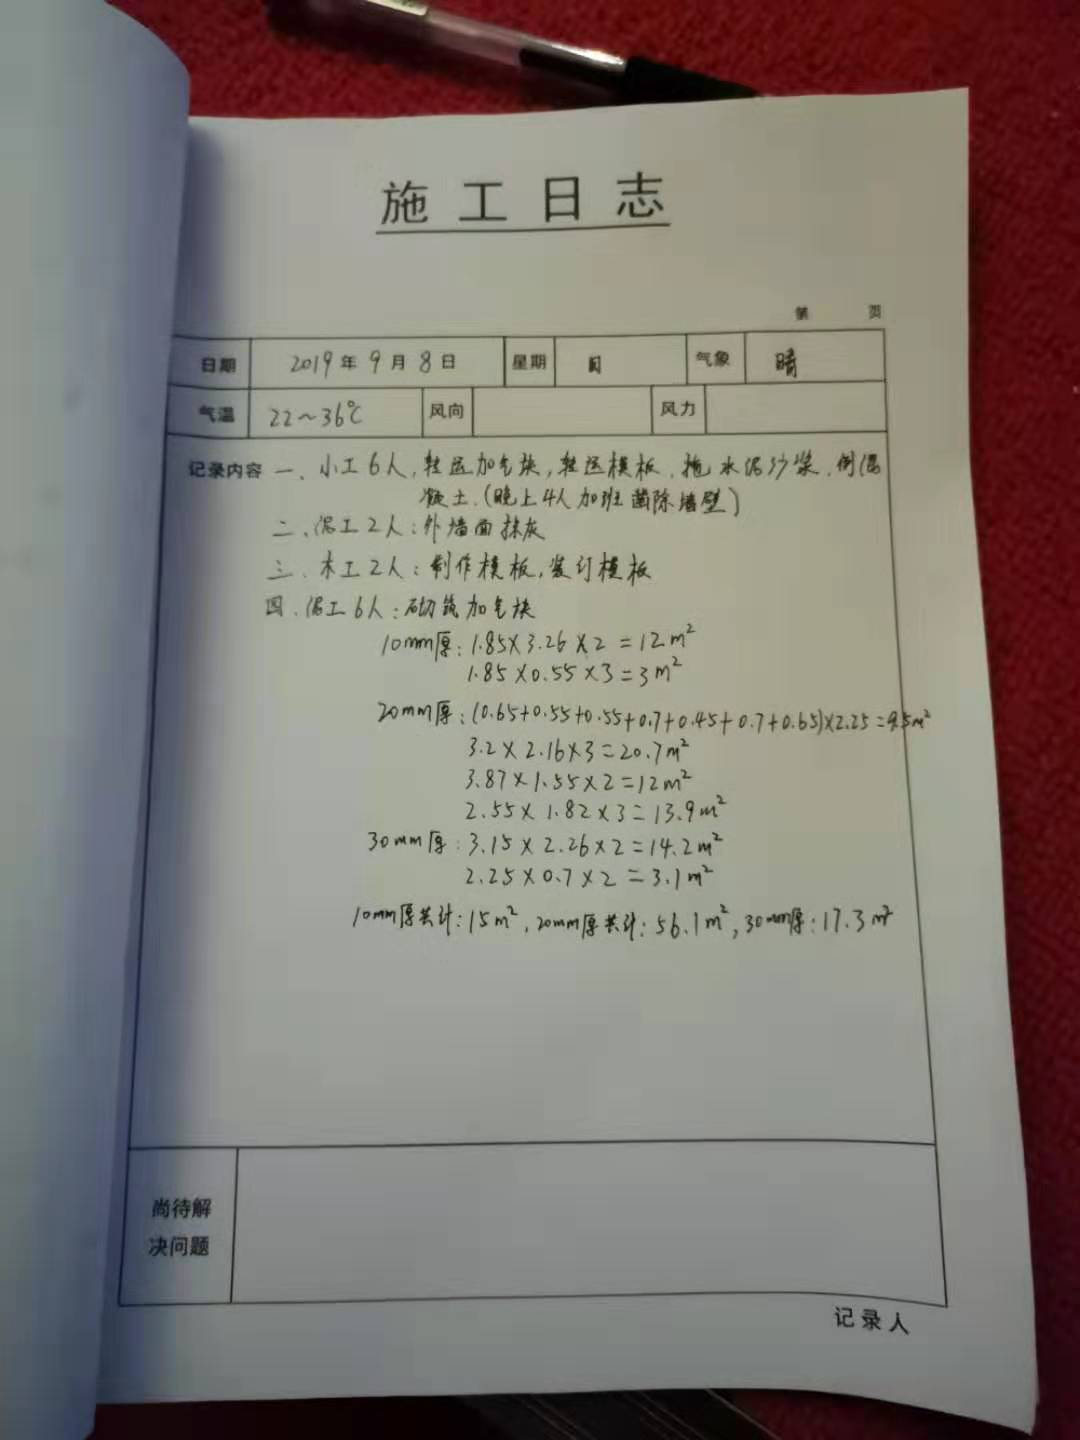 施工日志
第 页
日期 2019年9月8日 星期 日 气象 晴
气温 22~36℃ 风向 风力
记录内容 一、小工6人,转运加气块,转运模板、拖水泥沙浆、倒混
凝土.(晚上4人加班 除墙壁)
二、泥工2人:外墙面抹灰
三、木工2人:制作模板,装订模板
四、泥工6人:砌筑加气块
10mm厚:1.85×3.26×2=12m²
1.85×0.55×3=3m²
20mm厚:(0.65+0.55+0.55+0.7+0.45+0.7+0.65)×2.25=9.5m²
3.2×2.16×3=20.7m²
3.87×1.55×2=12m²
2.55×1.82×3=13.9m²
30mm厚:3.15×2.26×2=14.2m²
2.25×0.7×2=3.1m²
10mm厚共计:15m²,20mm厚共计:56.1m²,30mm厚:17.3m²
尚待解
决问题
记录人